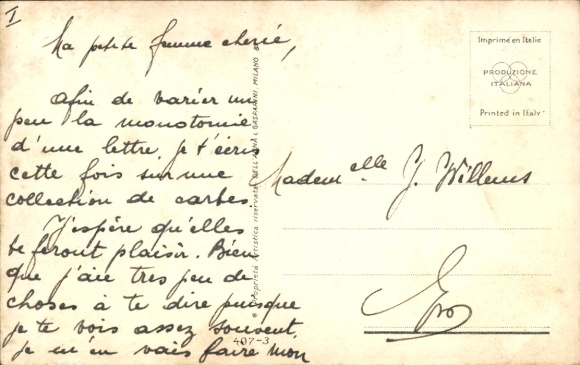 I
Ma petite femme cherie,
Afin de varier un
peu la monotomie
d'une lettre, je t'écris
cette fois sur une
collection de cartes.
J'espère qu'elles
te feront plaisir. Bien
que j'aie tres peu de
choses à te dire puisque
je te vois assez souvent
je m'en vais faire mon
Mademelle J. Willems
Imprimé en Italie
PRODUZIONE
ITALIANA
Printed in Italy
407-3